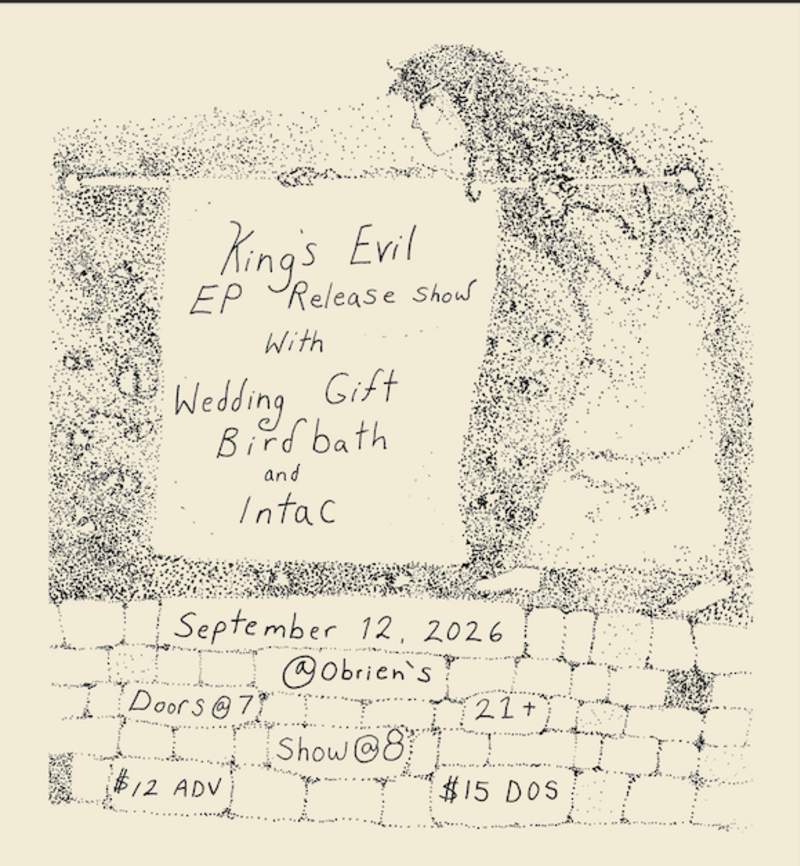 King's Evil
EP Release show
With
Wedding Gift
Birdbath
and
Intac
September 12, 2026
@Obrien's
Doors@7
21+
Show@8
$12 ADV
$15 DOS